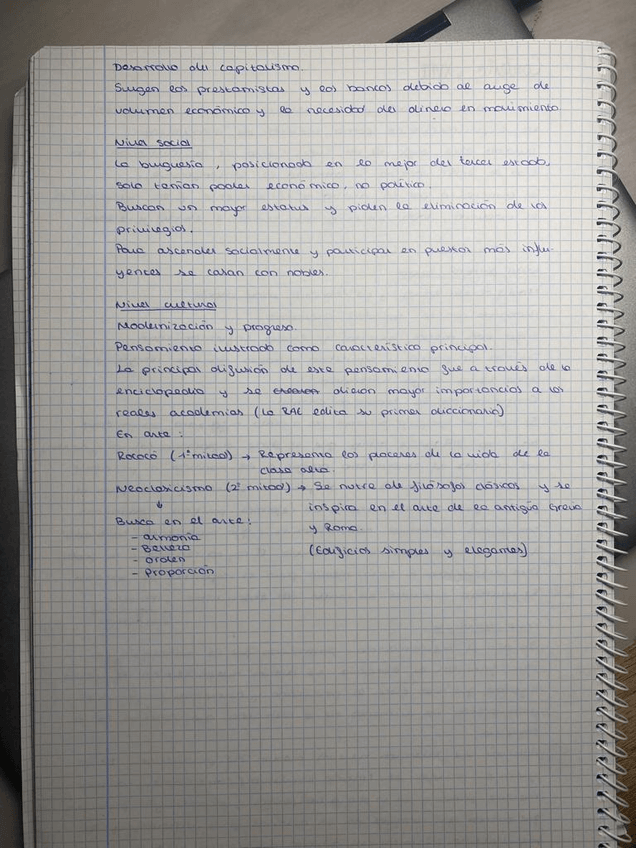 Desarrollo del capitalismo.
Surgen los prestamistas y los bancos debido al auge de
volumen económico y la necesidad del dinero en movimiento.
Nivel social
La burguesía, posicionada en lo mejor del tercer estado,
solo tenían poder económico, no político.
Buscan un mayor estatus y piden la eliminación de los
privilegios.
Para ascender socialmente y participar en puestos más influ-
yentes se casan con nobles.
Nivel cultural
Modernización y progreso.
Pensamiento ilustrado como característica principal.
La principal difusión de este pensamiento fue a través de la
enciclopedia y se dieron mayor importancias a las
reales academias (La RAE edita su primer diccionario)
En arte:
Rococó (1ª mitad) → Representa los placeres de la vida de la
clase alta.
Neoclasicismo (2ª mitad) → Se nutre de filósofos clásicos y se
↓ inspira en el arte de la antigua Grecia
Busca en el arte: y Roma.
- armonía
- Belleza (Edificios simples y elegantes)
- orden
- Proporción